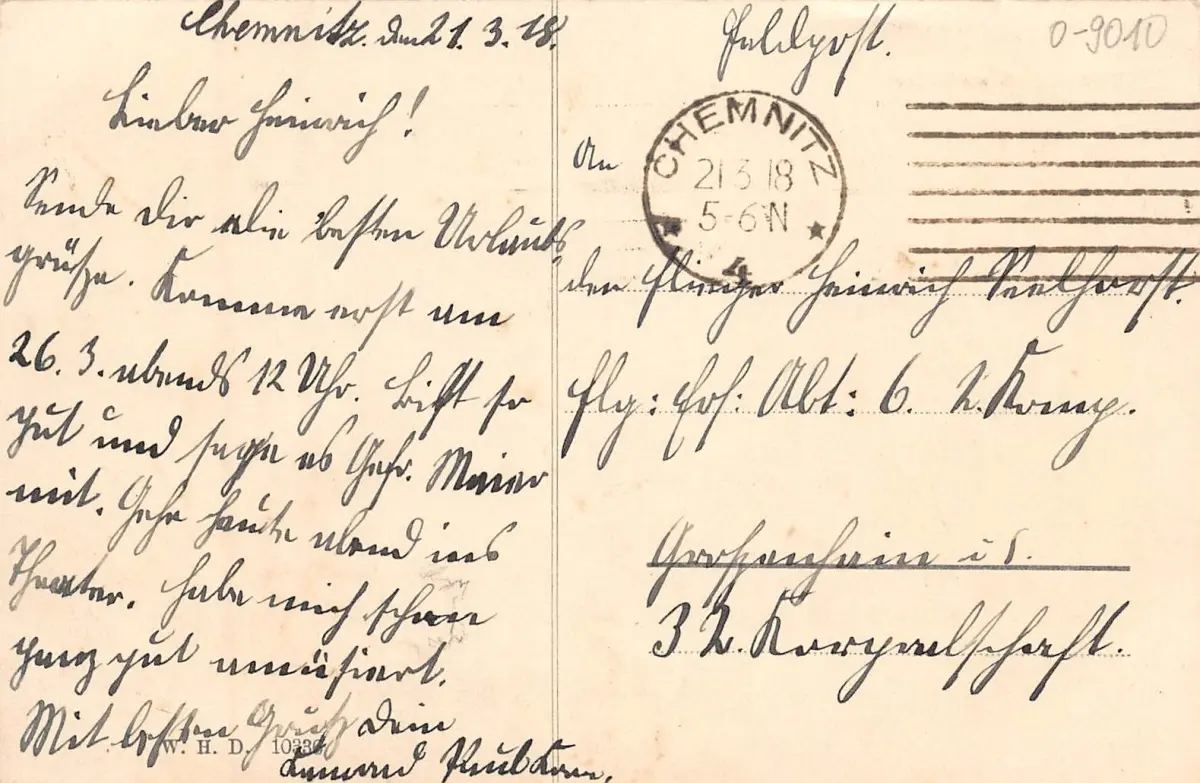 Chemnitz. den 21. 3. 18.
Lieber Heinrich!
Sende Dir die besten Urlaubs
grüße. Komme erst am
26. 3. abends 12 Uhr. Bist so
gut und sage es Gefr. Meier
mit. Gehe heute abend ins
Theater. Habe mich schon
ganz gut amüsiert.
Mit besten Gruß Dein
Kamerad Paul
W. H. D. 10336
Feldpost.
0-9010
CHEMNITZ
21 3 18
5-6 N
4
An
den Flieger Heinrich Seelhorst.
Flg: Ers: Abt: 6. 2. Komp.
Großenhain i S.
32. Korpralschaft.